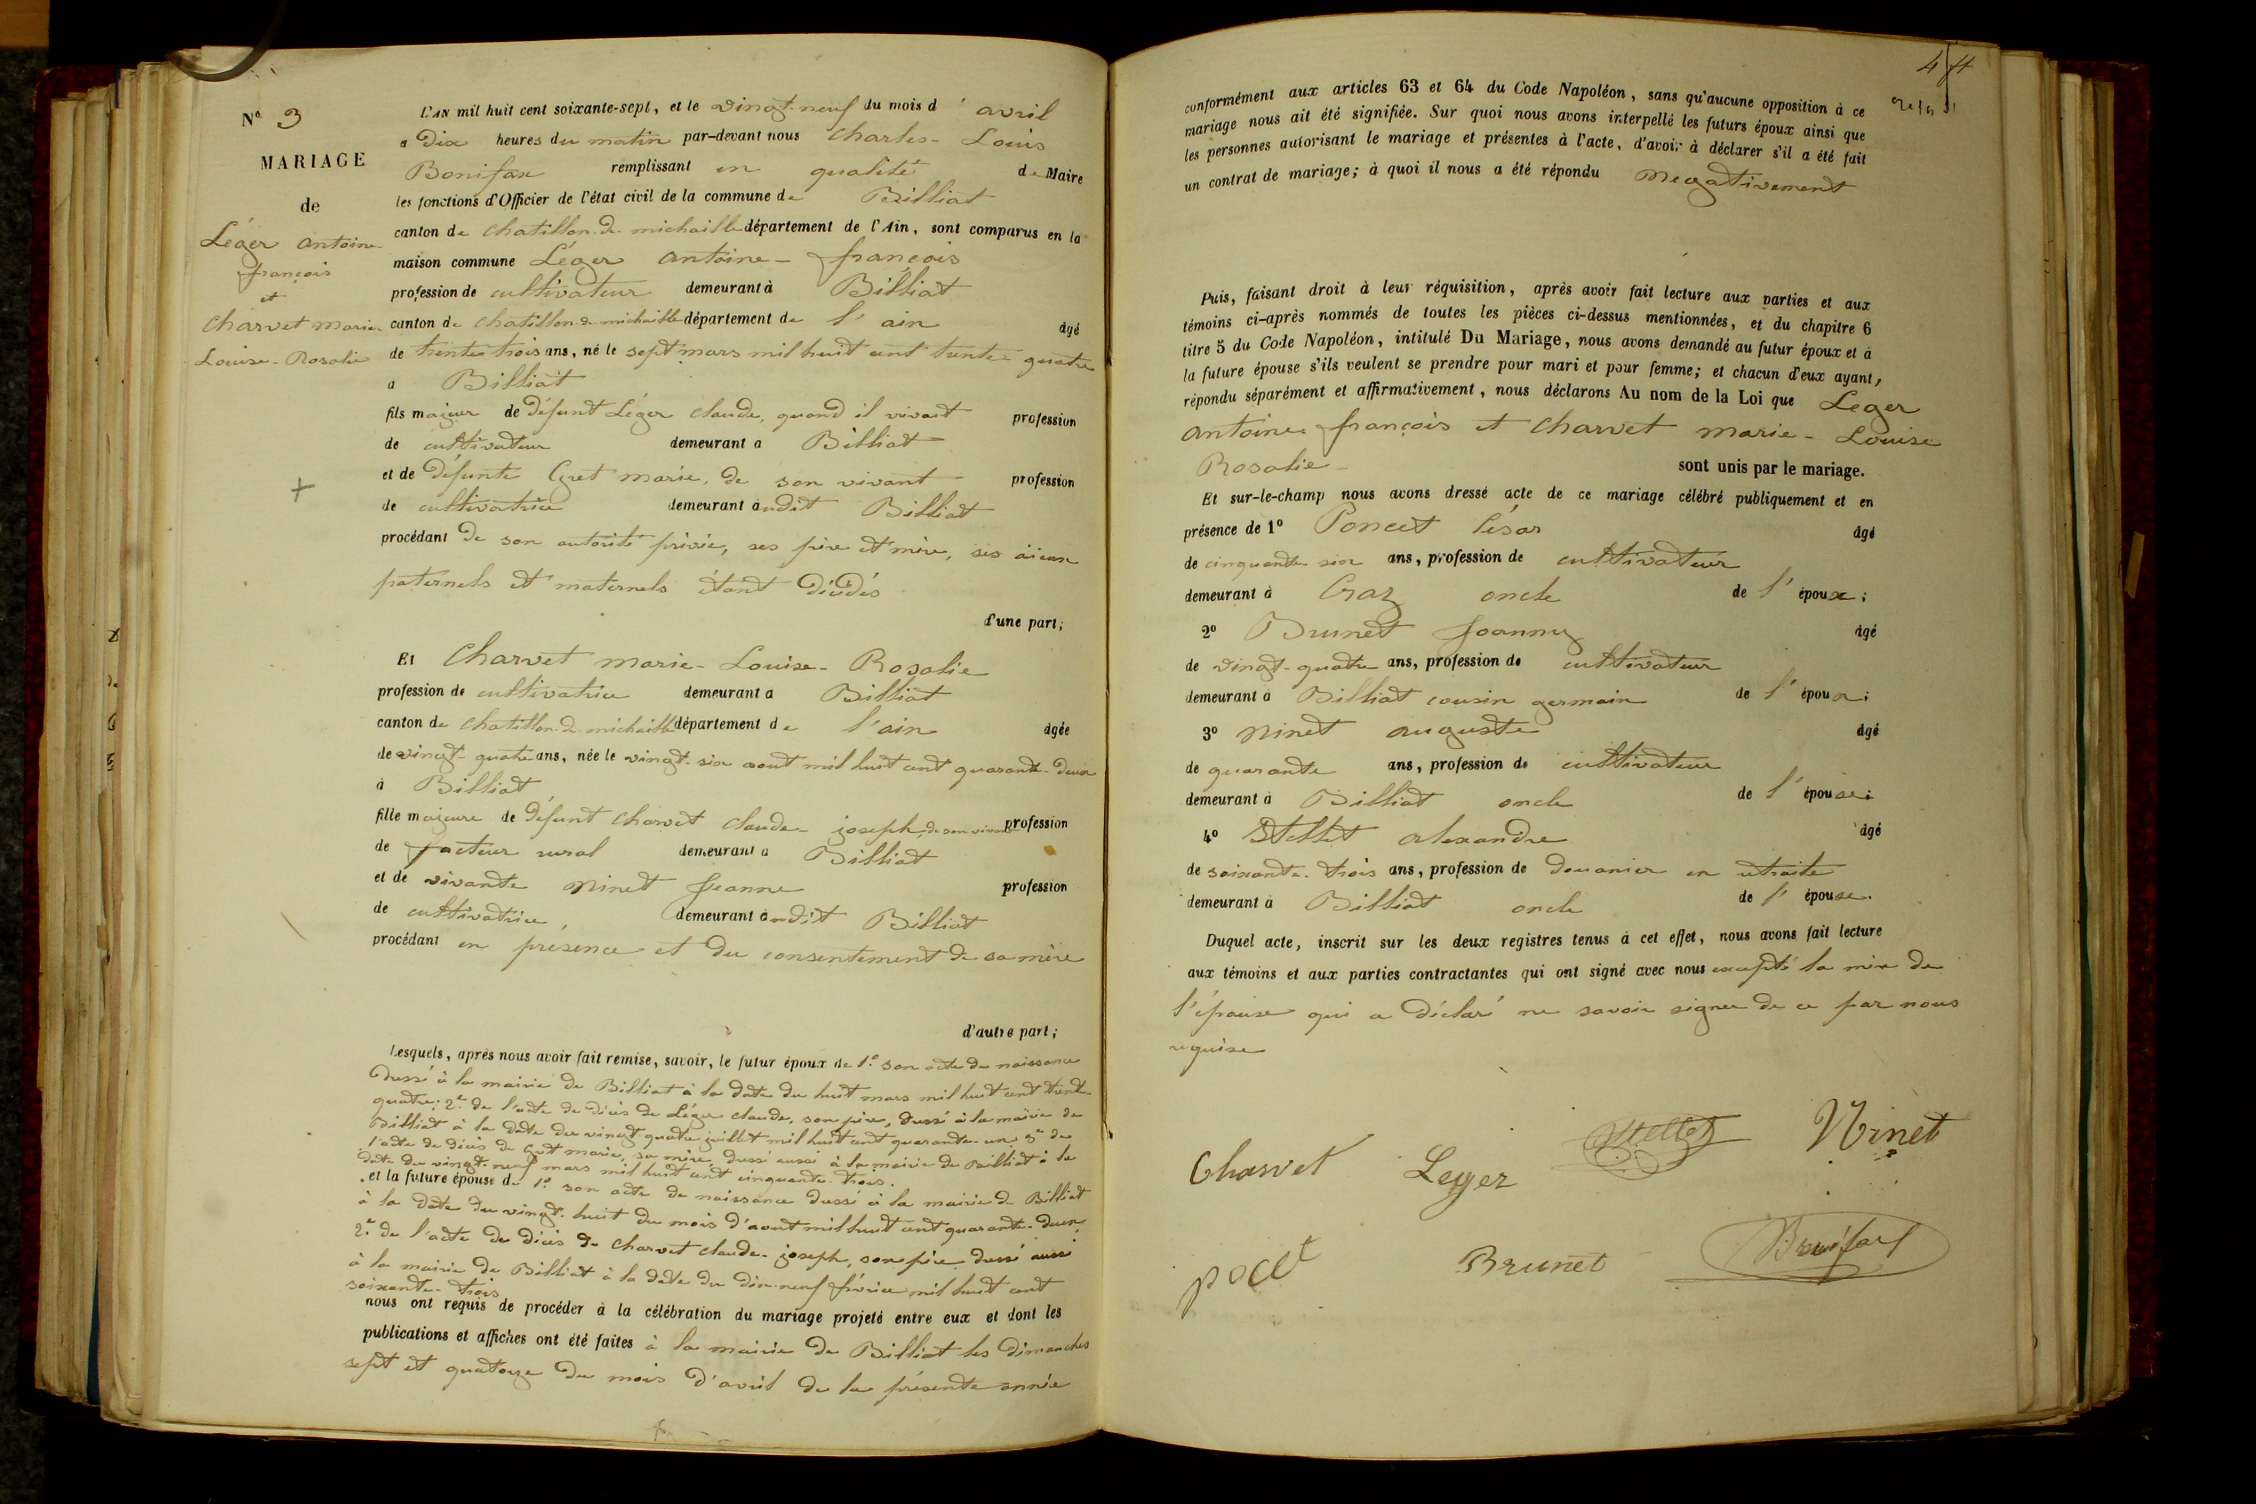 N.° 3
MARIAGE
de
Léger antoine
françois
et
Charvet marie
Louise-Rosalie
L'AN mil huit cent soixante-sept, et le vingt-neuf du mois d'avril
a Dix heures du matin par-devant nous Charles-Louis
Bonifax remplissant en qualité de Maire
les fonctions d'Officier de l'état civil de la commune de Billiat
canton de Chatillon-de-michaille département de l'Ain, sont comparus en la
maison commune Léger antoine-françois
profession de cultivateur demeurant à Billiat
canton de Chatillon-de-michaille département de l'ain âgé
de trente-trois ans, né le sept mars mil huit cent trente-quatre
a Billiat
fils majeur de défunt Léger claude, quand il vivait profession
de cultivateur demeurant a Billiat
et de défunte Gret marie, de son vivant profession
de cultivatrice demeurant audit Billiat
procédant de son autorité privée, ses père et mère, ses aïeux
paternels et maternels étant décédés
d'une part;
Et Charvet marie-Louise-Rosalie
profession de cultivatrice demeurant a Billiat
canton de Chatillon-de-michaille département de l'ain âgée
de vingt-quatre ans, née le vingt-six aout mil huit cent quarante-deux
à Billiat
fille majeure de défunt Charvet claude-joseph, de son vivant profession
de facteur rural demeurant a Billiat
et de vivante Ninet Jeanne profession
de cultivatrice, demeurant audit Billiat
procédant en présence et du consentement de sa mère
d'autre part;
Lesquels, après nous avoir fait remise, savoir, le futur époux de 1.° son acte de naissance
dressé à la mairie de Billiat à la date du huit mars mil huit cent trente-
quatre; 2.° de l'acte de décès de Léger claude, son père, dressé à la mairie de
Billiat à la date du vingt-quatre juillet mil huit cent quarante-un; 3.° de
l'acte de décès de Gret marie, sa mère, dressé aussi à la mairie de Billiat à la
date du vingt-neuf mars mil huit cent cinquante-trois.
et la future épouse de 1.° son acte de naissance dressé à la mairie de Billiat
à la date du vingt-huit du mois d'aout mil huit cent quarante-deux,
2.° de l'acte de décès de Charvet claude-joseph, son père dressé aussi
à la mairie de Billiat à la date du dix-neuf février mil huit cent
soixante-trois
nous ont requis de procéder à la célébration du mariage projeté entre eux et dont les
publications et affiches ont été faites à la mairie de Billiat les dimanches
sept et quatorze du mois d'avril de la présente année
conformément aux articles 63 et 64 du Code Napoléon, sans qu'aucune opposition à ce
mariage nous ait été signifiée. Sur quoi nous avons interpellé les futurs époux ainsi que
les personnes autorisant le mariage et présentes à l'acte, d'avoir à déclarer s'il a été fait
un contrat de mariage; à quoi il nous a été répondu Negativement
Puis, faisant droit à leur réquisition, après avoir fait lecture aux parties et aux
témoins ci-après nommés de toutes les pièces ci-dessus mentionnées, et du chapitre 6
titre 5 du Code Napoléon, intitulé Du Mariage, nous avons demandé au futur époux et à
la future épouse s'ils veulent se prendre pour mari et pour femme; et chacun d'eux ayant,
répondu séparément et affirmativement, nous déclarons Au nom de la Loi que Leger
antoine françois et Charvet marie-Louise
Rosalie sont unis par le mariage.
Et sur-le-champ nous avons dressé acte de ce mariage célébré publiquement et en
présence de 1° Poncet César âgé
de cinquante six ans, profession de cultivateur
demeurant à Craz oncle de l'époux;
2° Brunet Joanny âgé
de vingt-quatre ans, profession de cultivateur
demeurant à Billiat cousin germain de l'époux;
3° Ninet auguste âgé
de quarante ans, profession de cultivateur
demeurant à Billiat oncle de l'épouse;
4° Stellet alexandre âgé
de soixante-trois ans, profession de douanier en retraite
demeurant à Billiat oncle de l'épouse.
Duquel acte, inscrit sur les deux registres tenus à cet effet, nous avons fait lecture
aux témoins et aux parties contractantes qui ont signé avec nous excepté la mère de
l'épouse qui a déclaré ne savoir signer de ce par nous
requise
Stellet Ninet
Charvet Leger
Brunet Bonifax